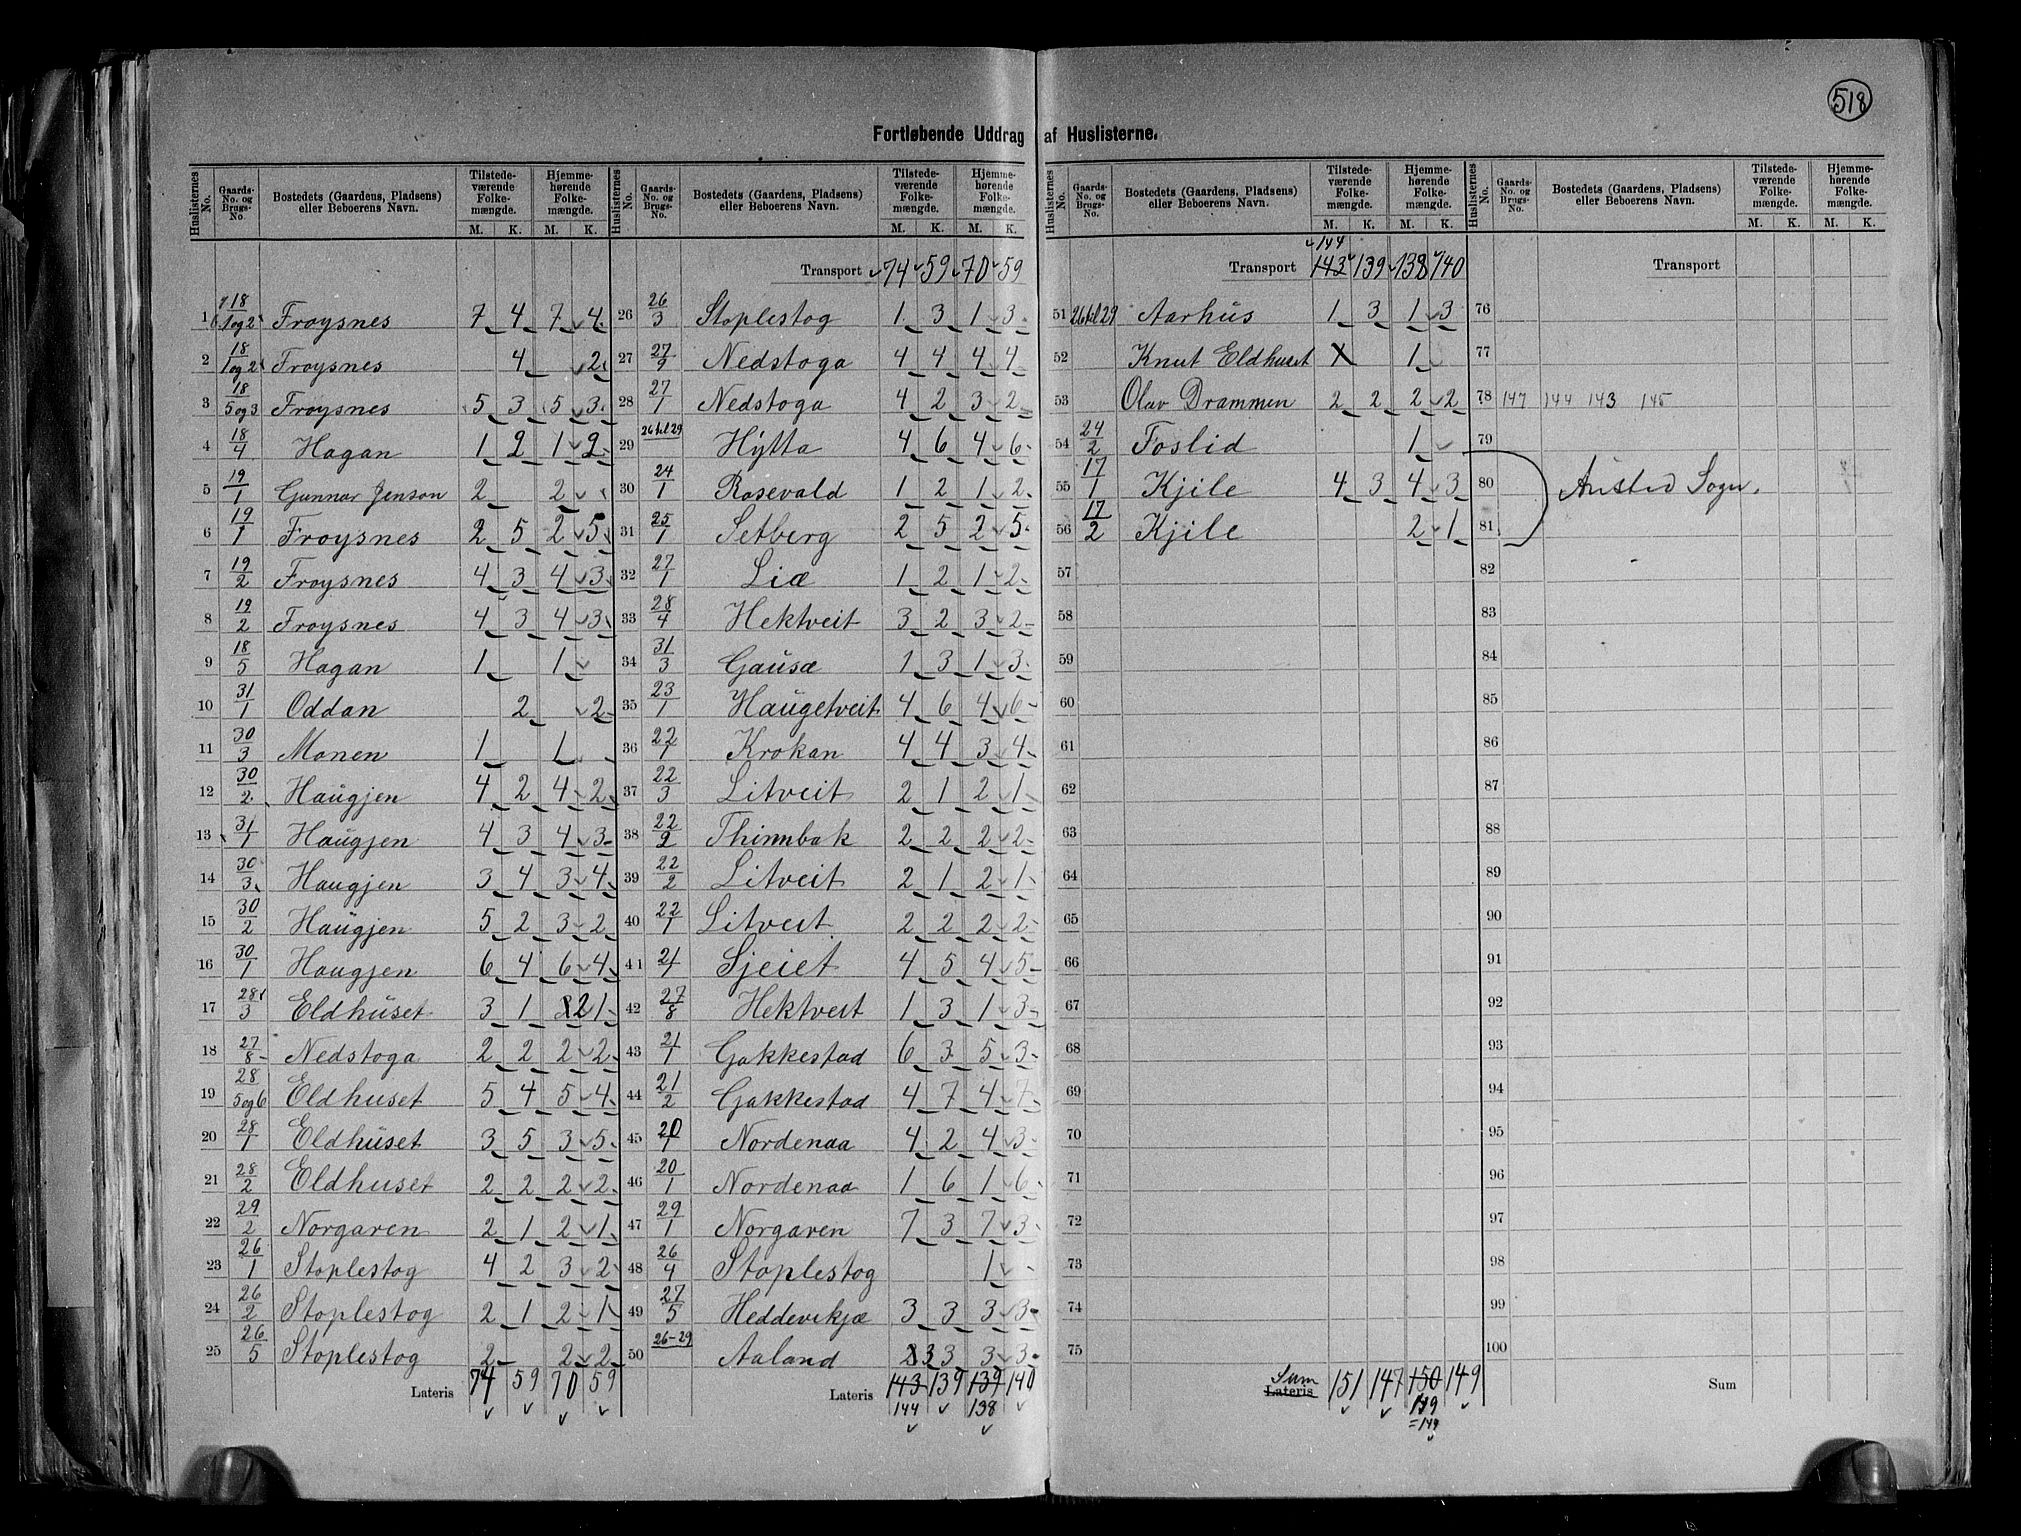 518
Fortløbende Uddrag af Huslisterne.
Huslisternes No. | Gaards-No. og Brugs-No. | Bostedets (Gaardens, Pladsens) eller Beboerens Navn. | Tilstedeværende Folkemængde. M. K. | Hjemmehørende Folkemængde. M. K.
1 18/1og2 Froysnes 7 4 7 4
2 18/1og2 Froysnes 4 2
3 18/5og3 Froysnes 5 3 5 3
4 18/4 Hagan 1 2 1 2
5 19/1 Gunnar Jenson 2 2
6 19/1 Froysnes 2 5 2 5
7 19/2 Froysnes 4 3 4 3
8 19/2 Froysnes 4 3 4 3
9 18/5 Hagan 1 1
10 31/1 Oddan 2 2
11 30/3 Monen 1 1
12 30/2 Haugjen 4 2 4 2
13 31/1 Haugjen 4 3 4 3
14 30/3 Haugjen 3 4 3 4
15 30/2 Haugjen 5 2 3 2
16 30/1 Haugjen 6 4 6 4
17 28/3 Eldhuset 3 1 2 1
18 27/8 Nedstoga 2 2 2 2
19 28/5og6 Eldhuset 5 4 5 4
20 28/1 Eldhuset 3 5 3 5
21 28/2 Eldhuset 2 2 2 2
22 29/2 Norgaren 2 1 2 1
23 26/1 Stoplestog 4 2 3 2
24 26/2 Stoplestog 2 1 2 1
25 26/5 Stoplestog 2 2 2
Lateris 74 59 70 59
Huslisternes No. | Gaards-No. og Brugs-No. | Bostedets (Gaardens, Pladsens) eller Beboerens Navn. | Tilstedeværende Folkemængde. M. K. | Hjemmehørende Folkemængde. M. K.
Transport 74 59 70 59
26 26/3 Stoplestog 1 3 1 3
27 27/9 Nedstoga 4 4 4 4
28 27/1 Nedstoga 4 2 3 2
29 26til29 Hytta 4 6 4 6
30 24/1 Rosevald 1 2 1 2
31 25/1 Setberg 2 5 2 5
32 27/1 Liæ 1 2 1 2
33 28/4 Hektveit 3 2 3 2
34 31/3 Gausæ 1 3 1 3
35 23/1 Haugetveit 4 6 4 6
36 22/1 Krokan 4 4 3 4
37 22/3 Litveit 2 1 2 1
38 22/2 Thinnbak 2 2 2 2
39 22/2 Litveit 2 1 2 1
40 22/1 Litveit 2 2 2 2
41 21/1 Sjeiet 4 5 4 5
42 27/8 Hektveit 1 3 1 3
43 21/1 Gakkestad 6 3 5 3
44 21/2 Gakkestad 4 7 4 7
45 20/1 Nordenaa 4 2 4 3
46 20/1 Nordenaa 1 6 1 6
47 29/1 Norgaren 7 3 7 3
48 26/4 Stoplestog 1
49 27/5 Heddevikjæ 3 3 3 3
50 26-29 Aaland 3 3 3 3
Lateris 143 139 139 140
144 138
Huslisternes No. | Gaards-No. og Brugs-No. | Bostedets (Gaardens, Pladsens) eller Beboerens Navn. | Tilstedeværende Folkemængde. M. K. | Hjemmehørende Folkemængde. M. K.
144
Transport 143 139 138 140
51 26til29 Aarhus 1 3 1 3
52 Knut Eldhuset 1
53 Olav Drammen 2 2 2 2
54 24/2 Foslid 1
55 17/1 Kjile 4 3 4 3
56 17/2 Kjile 2 1
57
58
59
60
61
62
63
64
65
66
67
68
69
70
71
72
73
74
75
Sum
Lateris 151 147 150 149
149
=149
Huslisternes No. | Gaards-No. og Brugs-No. | Bostedets (Gaardens, Pladsens) eller Beboerens Navn. | Tilstedeværende Folkemængde. M. K. | Hjemmehørende Folkemængde. M. K.
Transport
76
77
78 147 144 143 145
79
80 Austad Sogn.
81
82
83
84
85
86
87
88
89
90
91
92
93
94
95
96
97
98
99
100
Sum